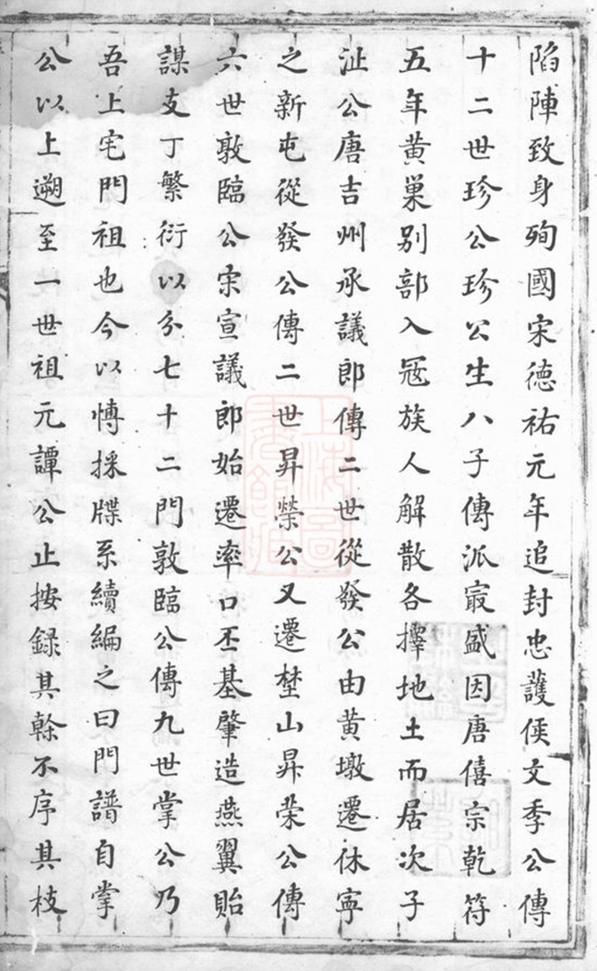 陷陣致身殉國宋德祐元年追封忠護侯文季公傳
十二世珍公珍公生八子傳派㝡盛因唐僖宗乾符
五年黃巢別部入冦族人解散各擇地土而居次子
沚公唐吉州承議郎傳二世從發公由黃墩遷休寧
之新屯從發公傳二世昇榮公又遷埜山昇荣公傳
六世敦臨公宋宣議郎始遷率口丕基肇造燕翼貽
謀支丁繁衍以分七十二門敦臨公傳九世掌公乃
吾上宅門祖也今以愽採牒系續編之曰門譜自掌
公以上遡至一世祖元譚公止按録其餘不序其枝
上海圖
書館藏